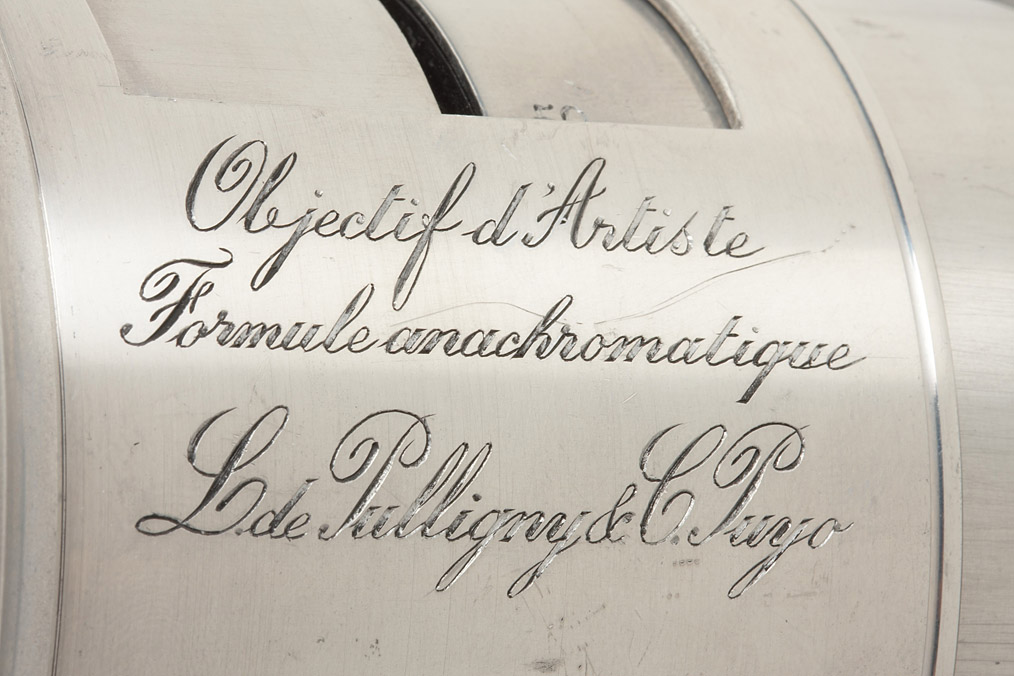 50
Objectif d'Artiste
Formule anachromatique
L. de Pulligny & C. Puyo